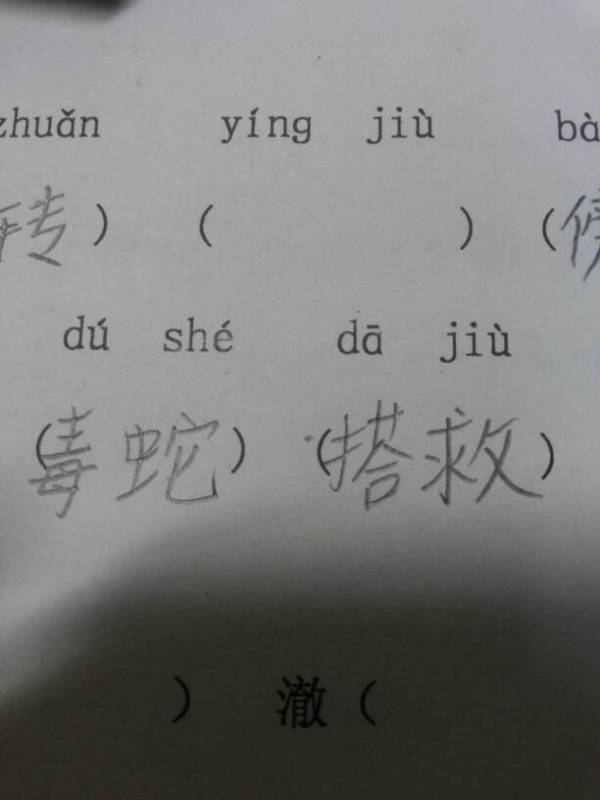 zhuǎn yíng jiù bà
转 ) ( ) (傍
dú shé dā jiù
(毒蛇) (搭救)
) 澈 (